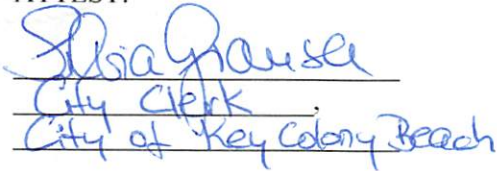 ATTEST:
Silvia Gransee
City Clerk,
City of Key Colony Beach